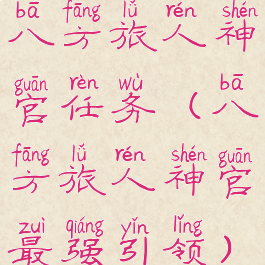 bā fāng lǚ rén shén
八方旅人神
guān rèn wù bā
官任务（八
fāng lǚ rén shén guān
方旅人神官
zuì qiáng yǐn lǐng
最强引领）